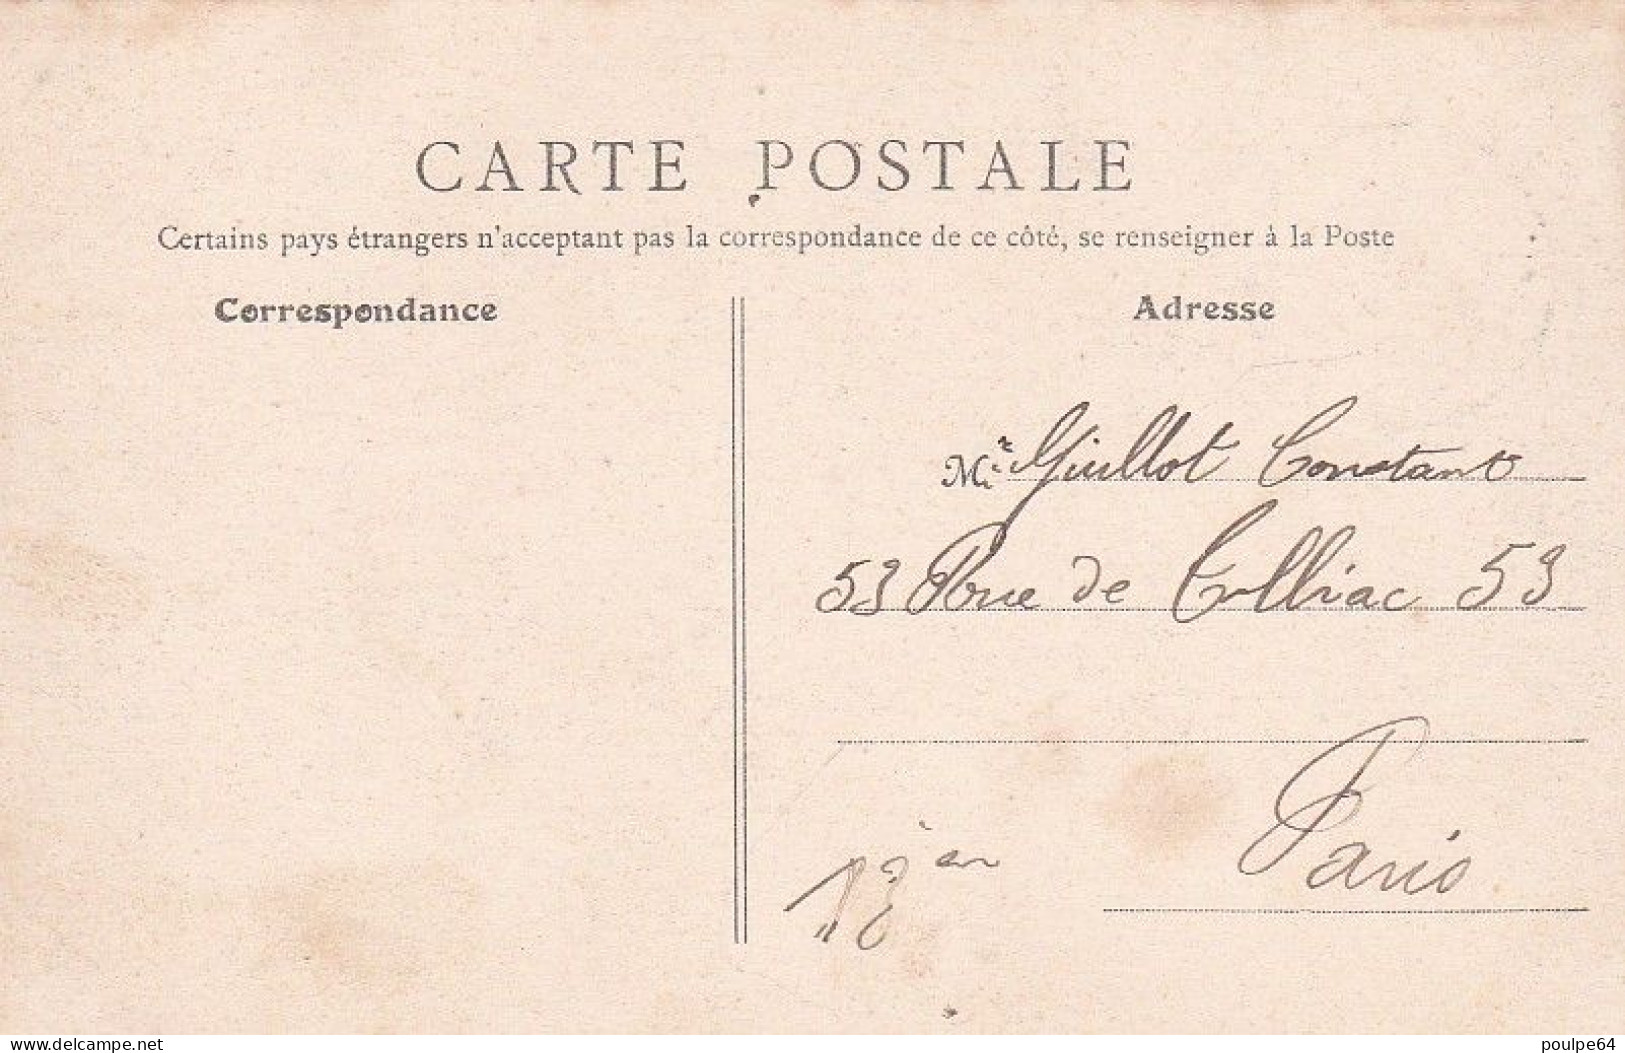 CARTE POSTALE
Certains pays étrangers n'acceptant pas la correspondance de ce côté, se renseigner à la Poste
Correspondance
Adresse
Mr Guillot Constant
53 Rue de Tolbiac 53
Paris
13
delcampe.net
poulpe64